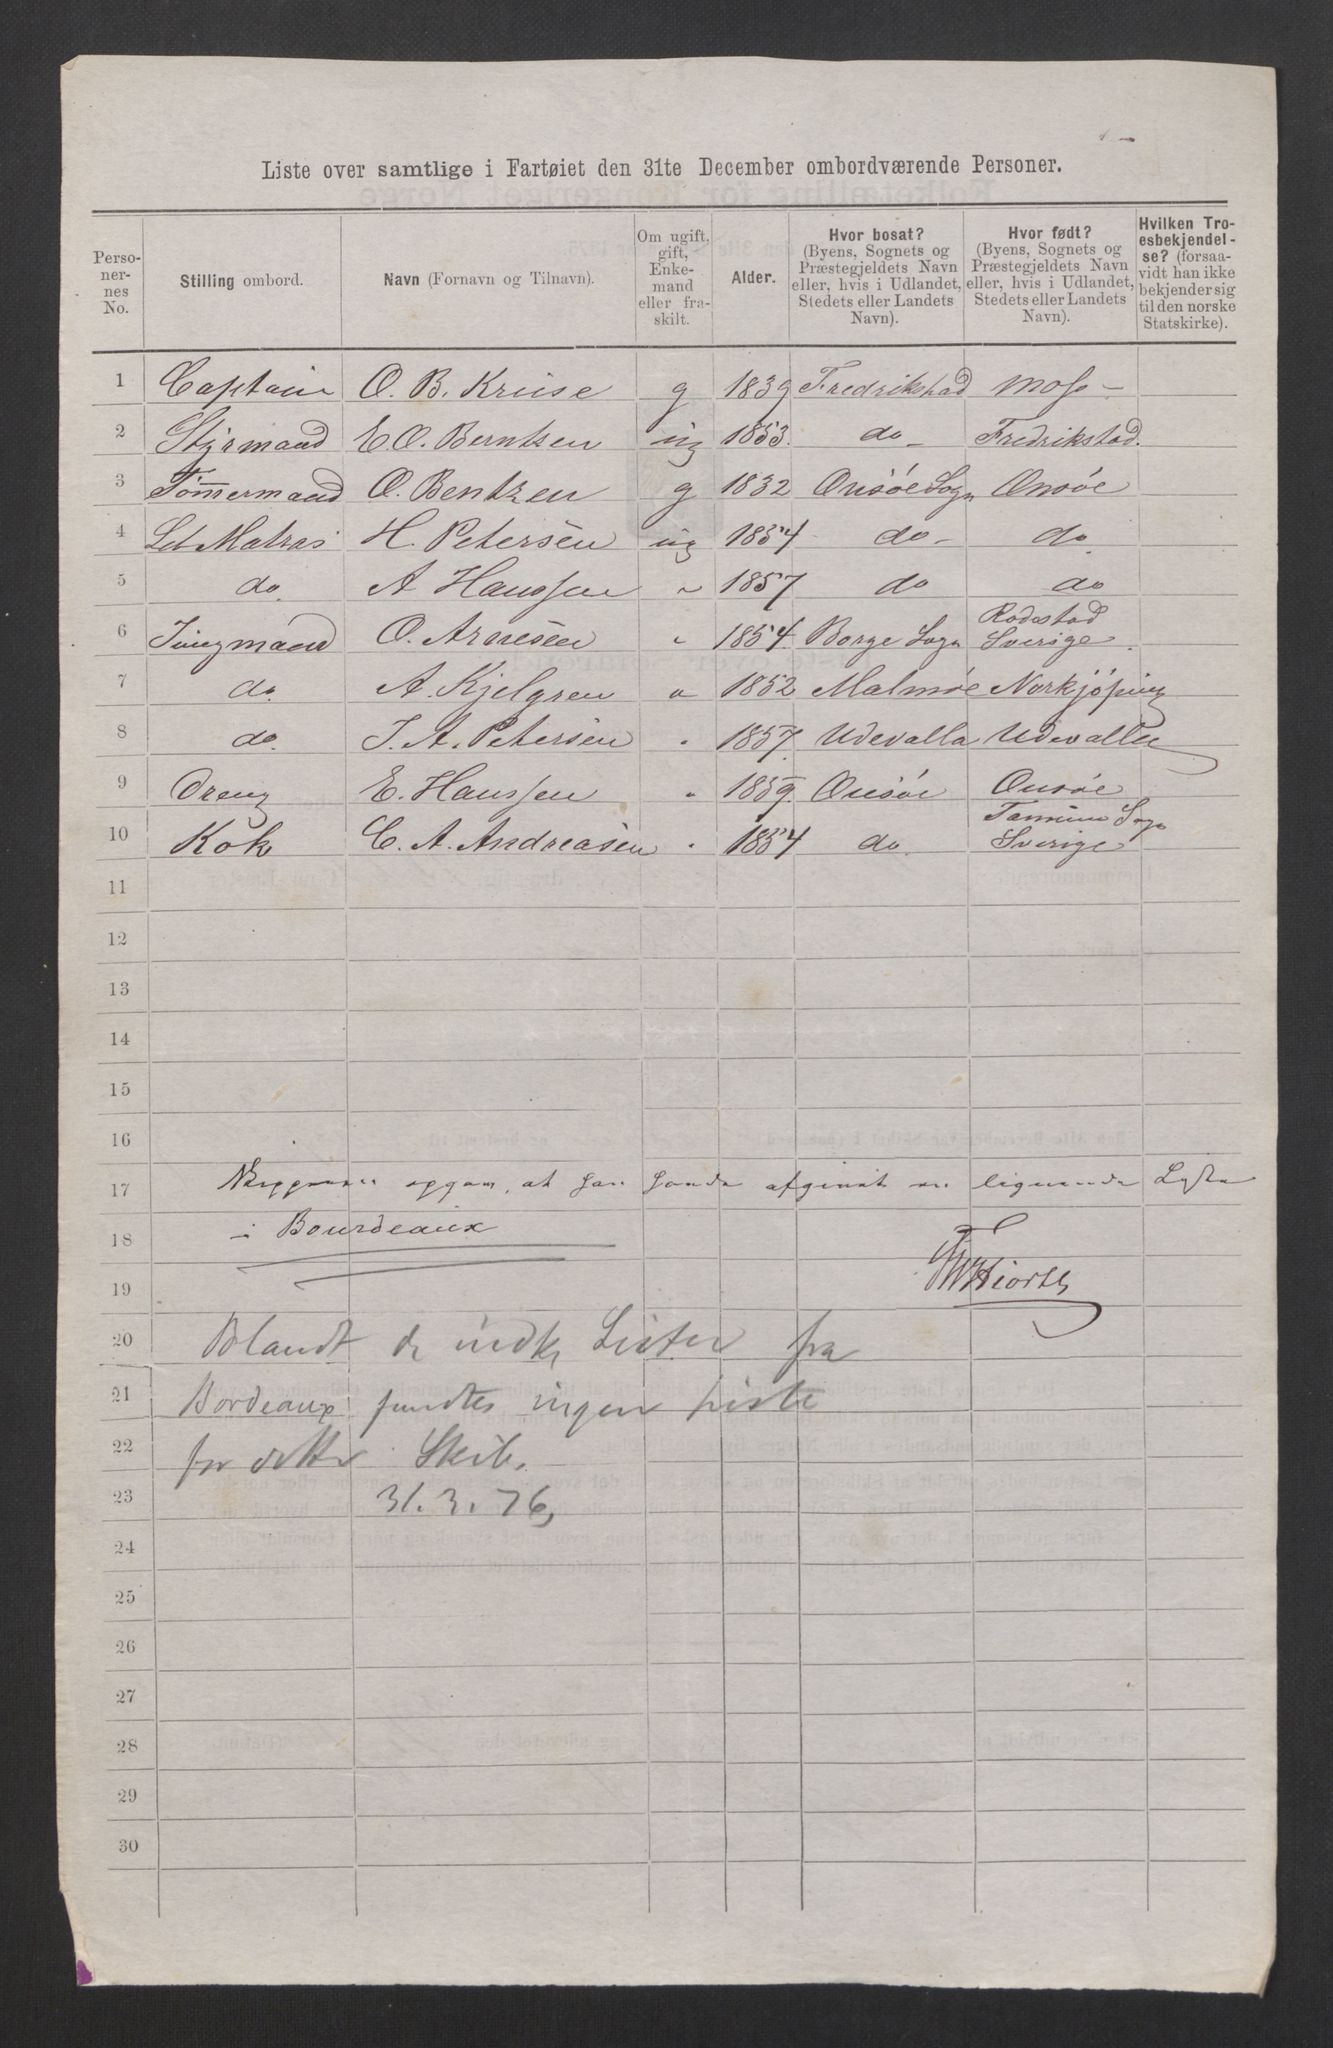 Liste over samtlige i Fartøiet den 31te December ombordværende Personer.
Perso-
ner-
nes
No.
Stilling ombord.
Navn (Fornavn og Tilnavn).
Om ugift,
gift,
Enke-
mand
eller fra-
skilt.
Alder.
Hvor bosat?
(Byens, Sognets og
Præstegjeldets Navn
eller, hvis i Udlandet,
Stedets eller Landets
Navn).
Hvor født?
(Byens, Sognets og
Præstegjeldets Navn
eller, hvis i Udlandet,
Stedets eller Landets
Navn).
Hvilken Tro-
esbekjendel-
se? (forsaa-
vidt han ikke
bekjender sig
til den norske
Statskirke).
1 Captain O. B. Kruse g 1839 Fredrikstad Moss -
2 Styrmand E. O. Berntsen ug 1853. do - Fredrikstad.
3 Tömmermand O. Bentzen g 1832 Onsöe Sogn Onsöe
4 Let Matros H. Petersen ug 1854 do - do
5 do. A Hanssen " 1857 do do
6 Jungmand O. Arnesen " 1854. Borge Sogn Sverige.
7 do. A. Kjelgren " 1852 Malmöe Norkjöping
8 do. J. A. Petersen " 1857. Udevalla Udevalla
9 Dreng E. Hanssen " 1859. Onsöe Onsöe
10 Kok C. A. Andreasen " 1854 do. Sogn Sverige
11
12
13
14
15
16
17 Skipperen opgav, at han havde afgivet en lignende Liste
18 i Bourdeaux
Hiorth
19
20 Blandt de indk. Lister fra
21 Bordeaux fandtes ingen Liste
22 for dette Skib.
23 31.3.76,
24
25
26
27
28
29
30